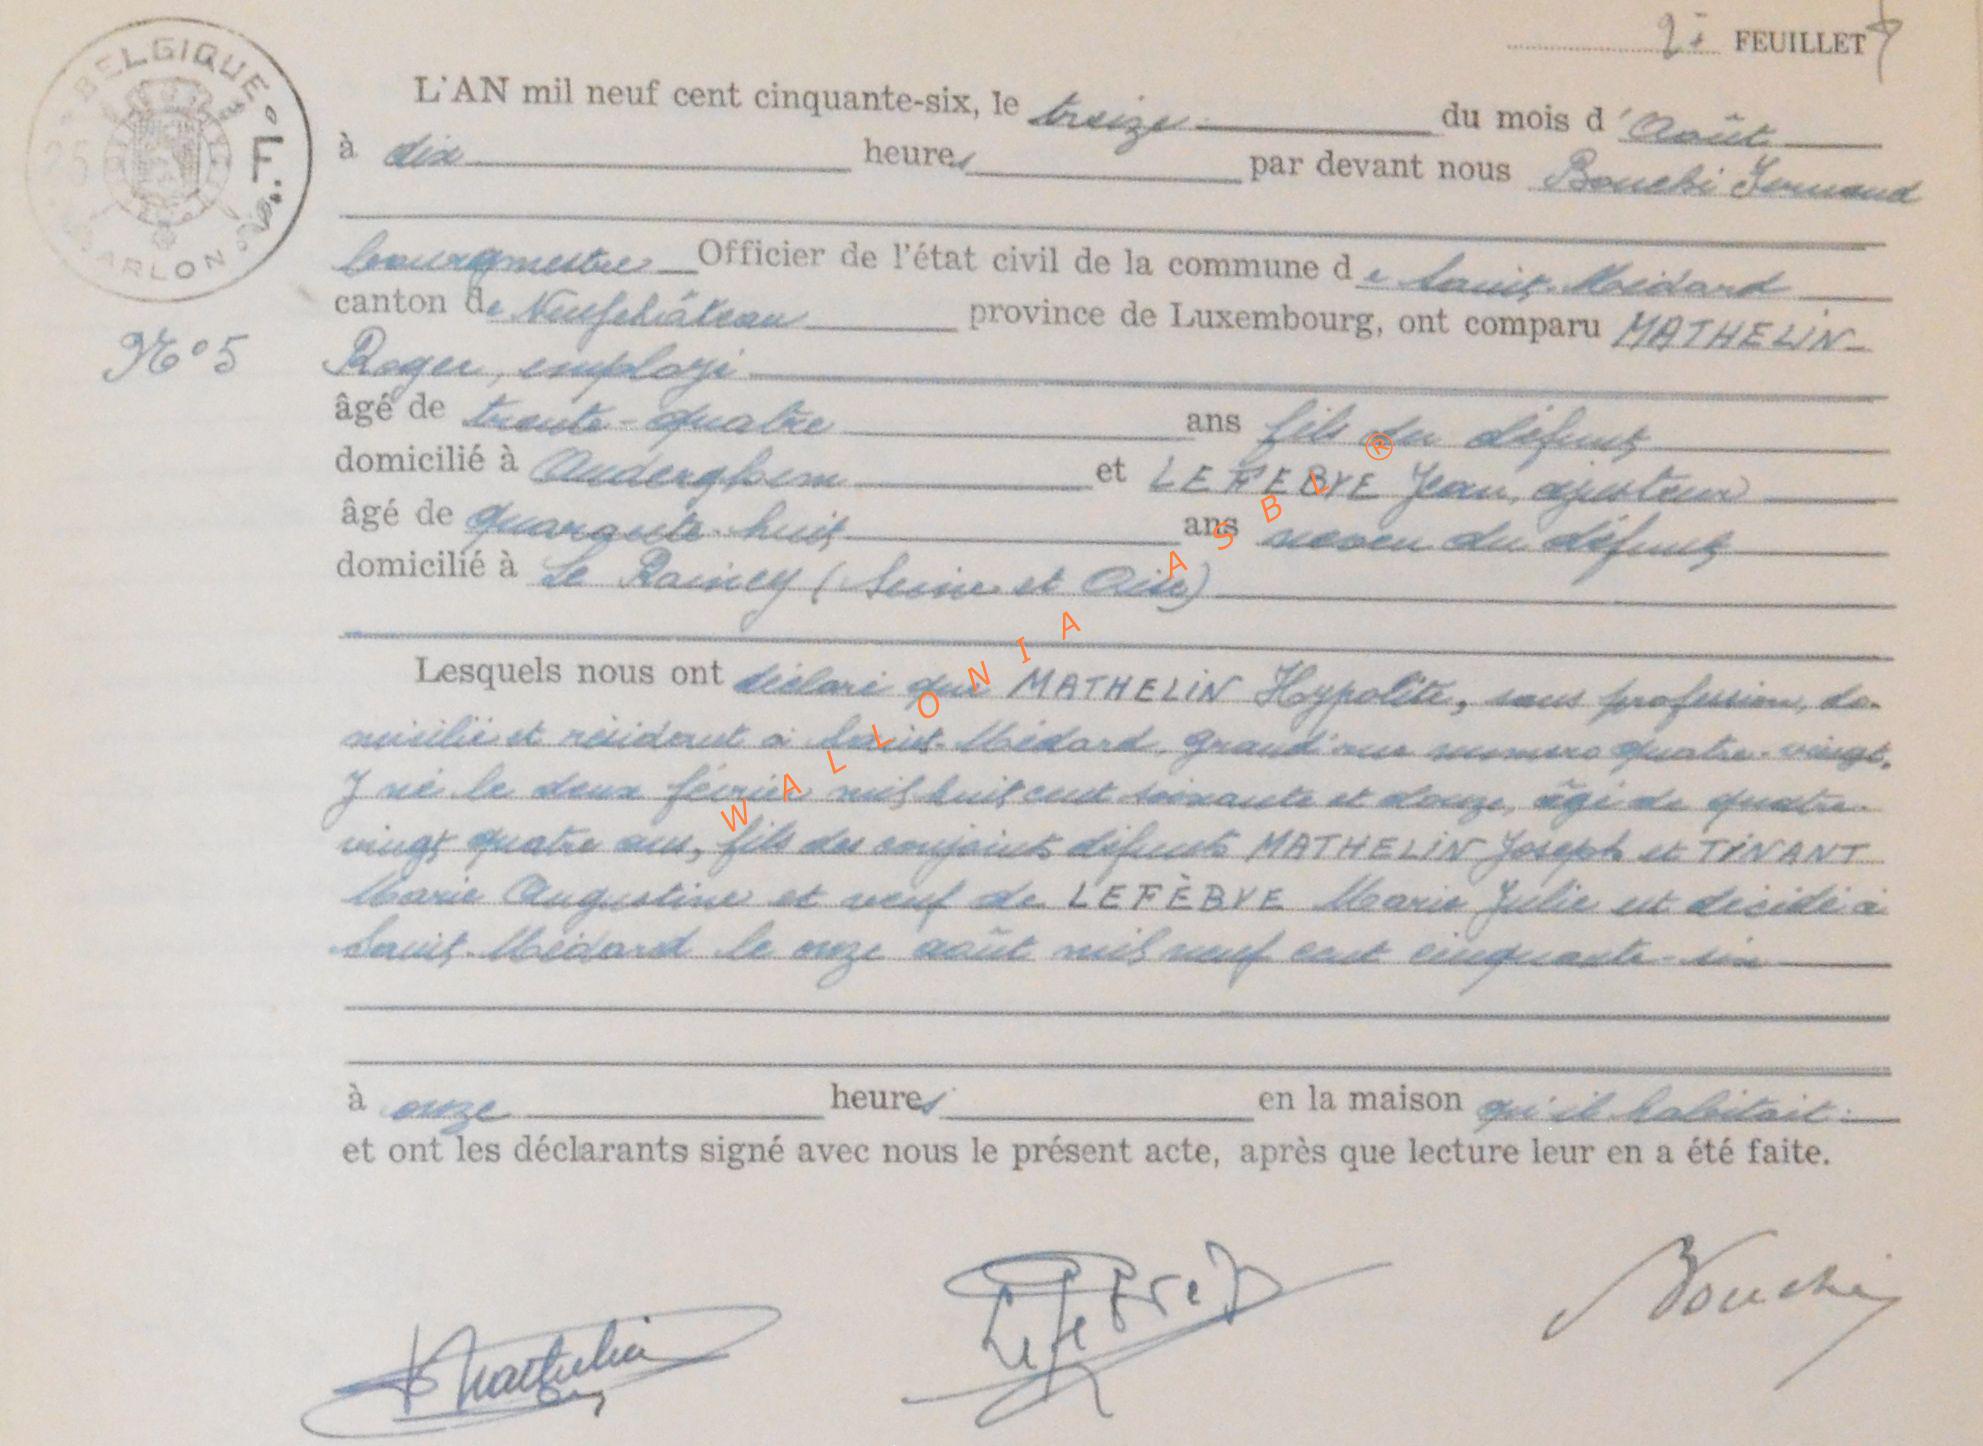 BELGIQUE
ARLON
2e FEUILLET
L'AN mil neuf cent cinquante-six, le treize du mois d'Août
à dix heures par devant nous Bouché Fernand
bourgmestre Officier de l'état civil de la commune de Saint-Médard
canton de Neufchâteau province de Luxembourg, ont comparu MATHELIN
N° 5
Roger, employé
âgé de trente-quatre ans fils du défunt
domicilié à Auderghem et LEFEBVE Jean, ajusteur
âgé de quarante-huit ans neveu du défunt
domicilié à Le Raincy (Seine et Oise)
Lesquels nous ont déclaré que MATHELIN Hypolite, sans profession, do-
micilié et résidant à Saint-Médard, grand'rue numero quatre-vingt,
né le deux février mil huit cent soixante et douze, âgé de quatre-
vingt quatre ans, fils des conjoints défunts MATHELIN Joseph et TINANT
Marie Augustine et veuf de LEFÈBVE Marie Julie est décédé à
Saint-Médard le onze août mil neuf cent cinquante-six
à onze heures en la maison qu'il habitait.
et ont les déclarants signé avec nous le présent acte, après que lecture leur en a été faite.
Mathelin
Lefebve
Bouché
WALLONIA ASBL ®